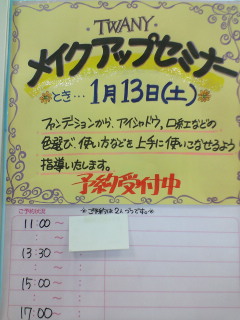 TWANY
メイクアップセミナー
とき… 1月13日(土)
ファンデーションから、アイシャドウ、口紅などの
色選び、使い方などを上手に使いこなせるよう
指導いたします。
予約受付中
ご予約状況
※ご予約は2人づつです。※
11:00 〜
: 〜
13:30 〜
: 〜
15:00 〜
: 〜
17:00 〜